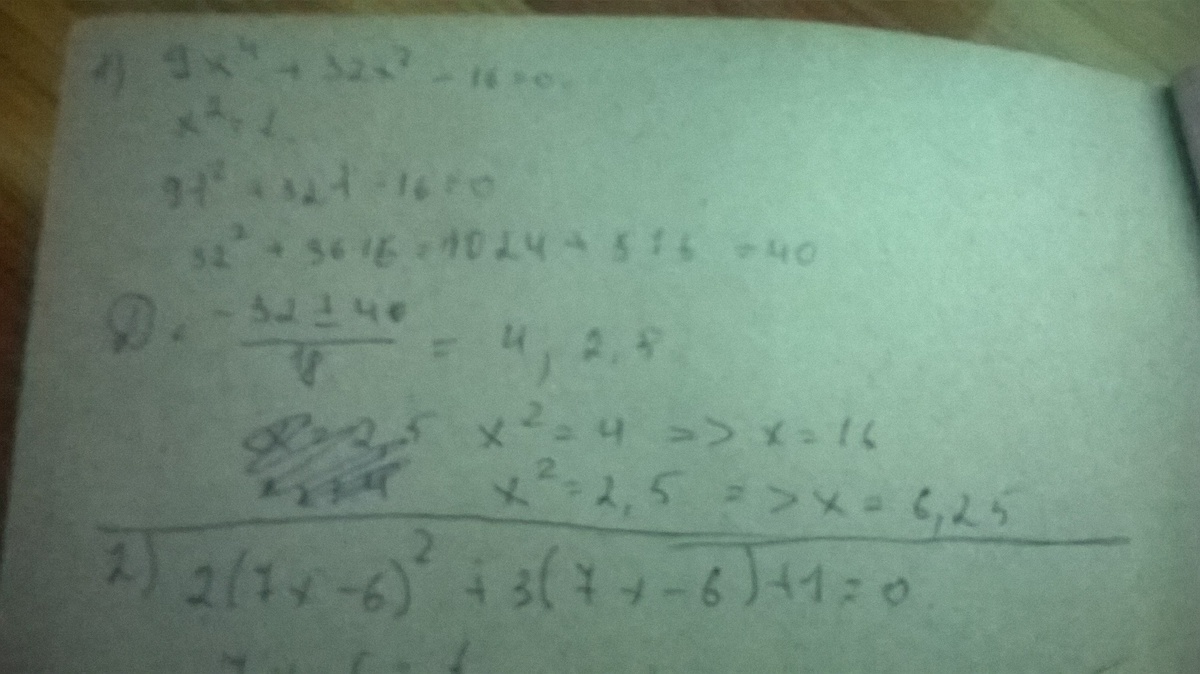 1) 9x⁴ + 32x² - 16 = 0.
x² = t
9t² + 32t - 16 = 0
32² + 36·16 = 1024 + 576 = 40
D. -32 ± 40 / 18 = 4, 2.5
x² = 4 => x = 16
x² = 2,5 => x = 6,25
2) 2(7x - 6)² + 3(7x - 6) + 1 = 0.